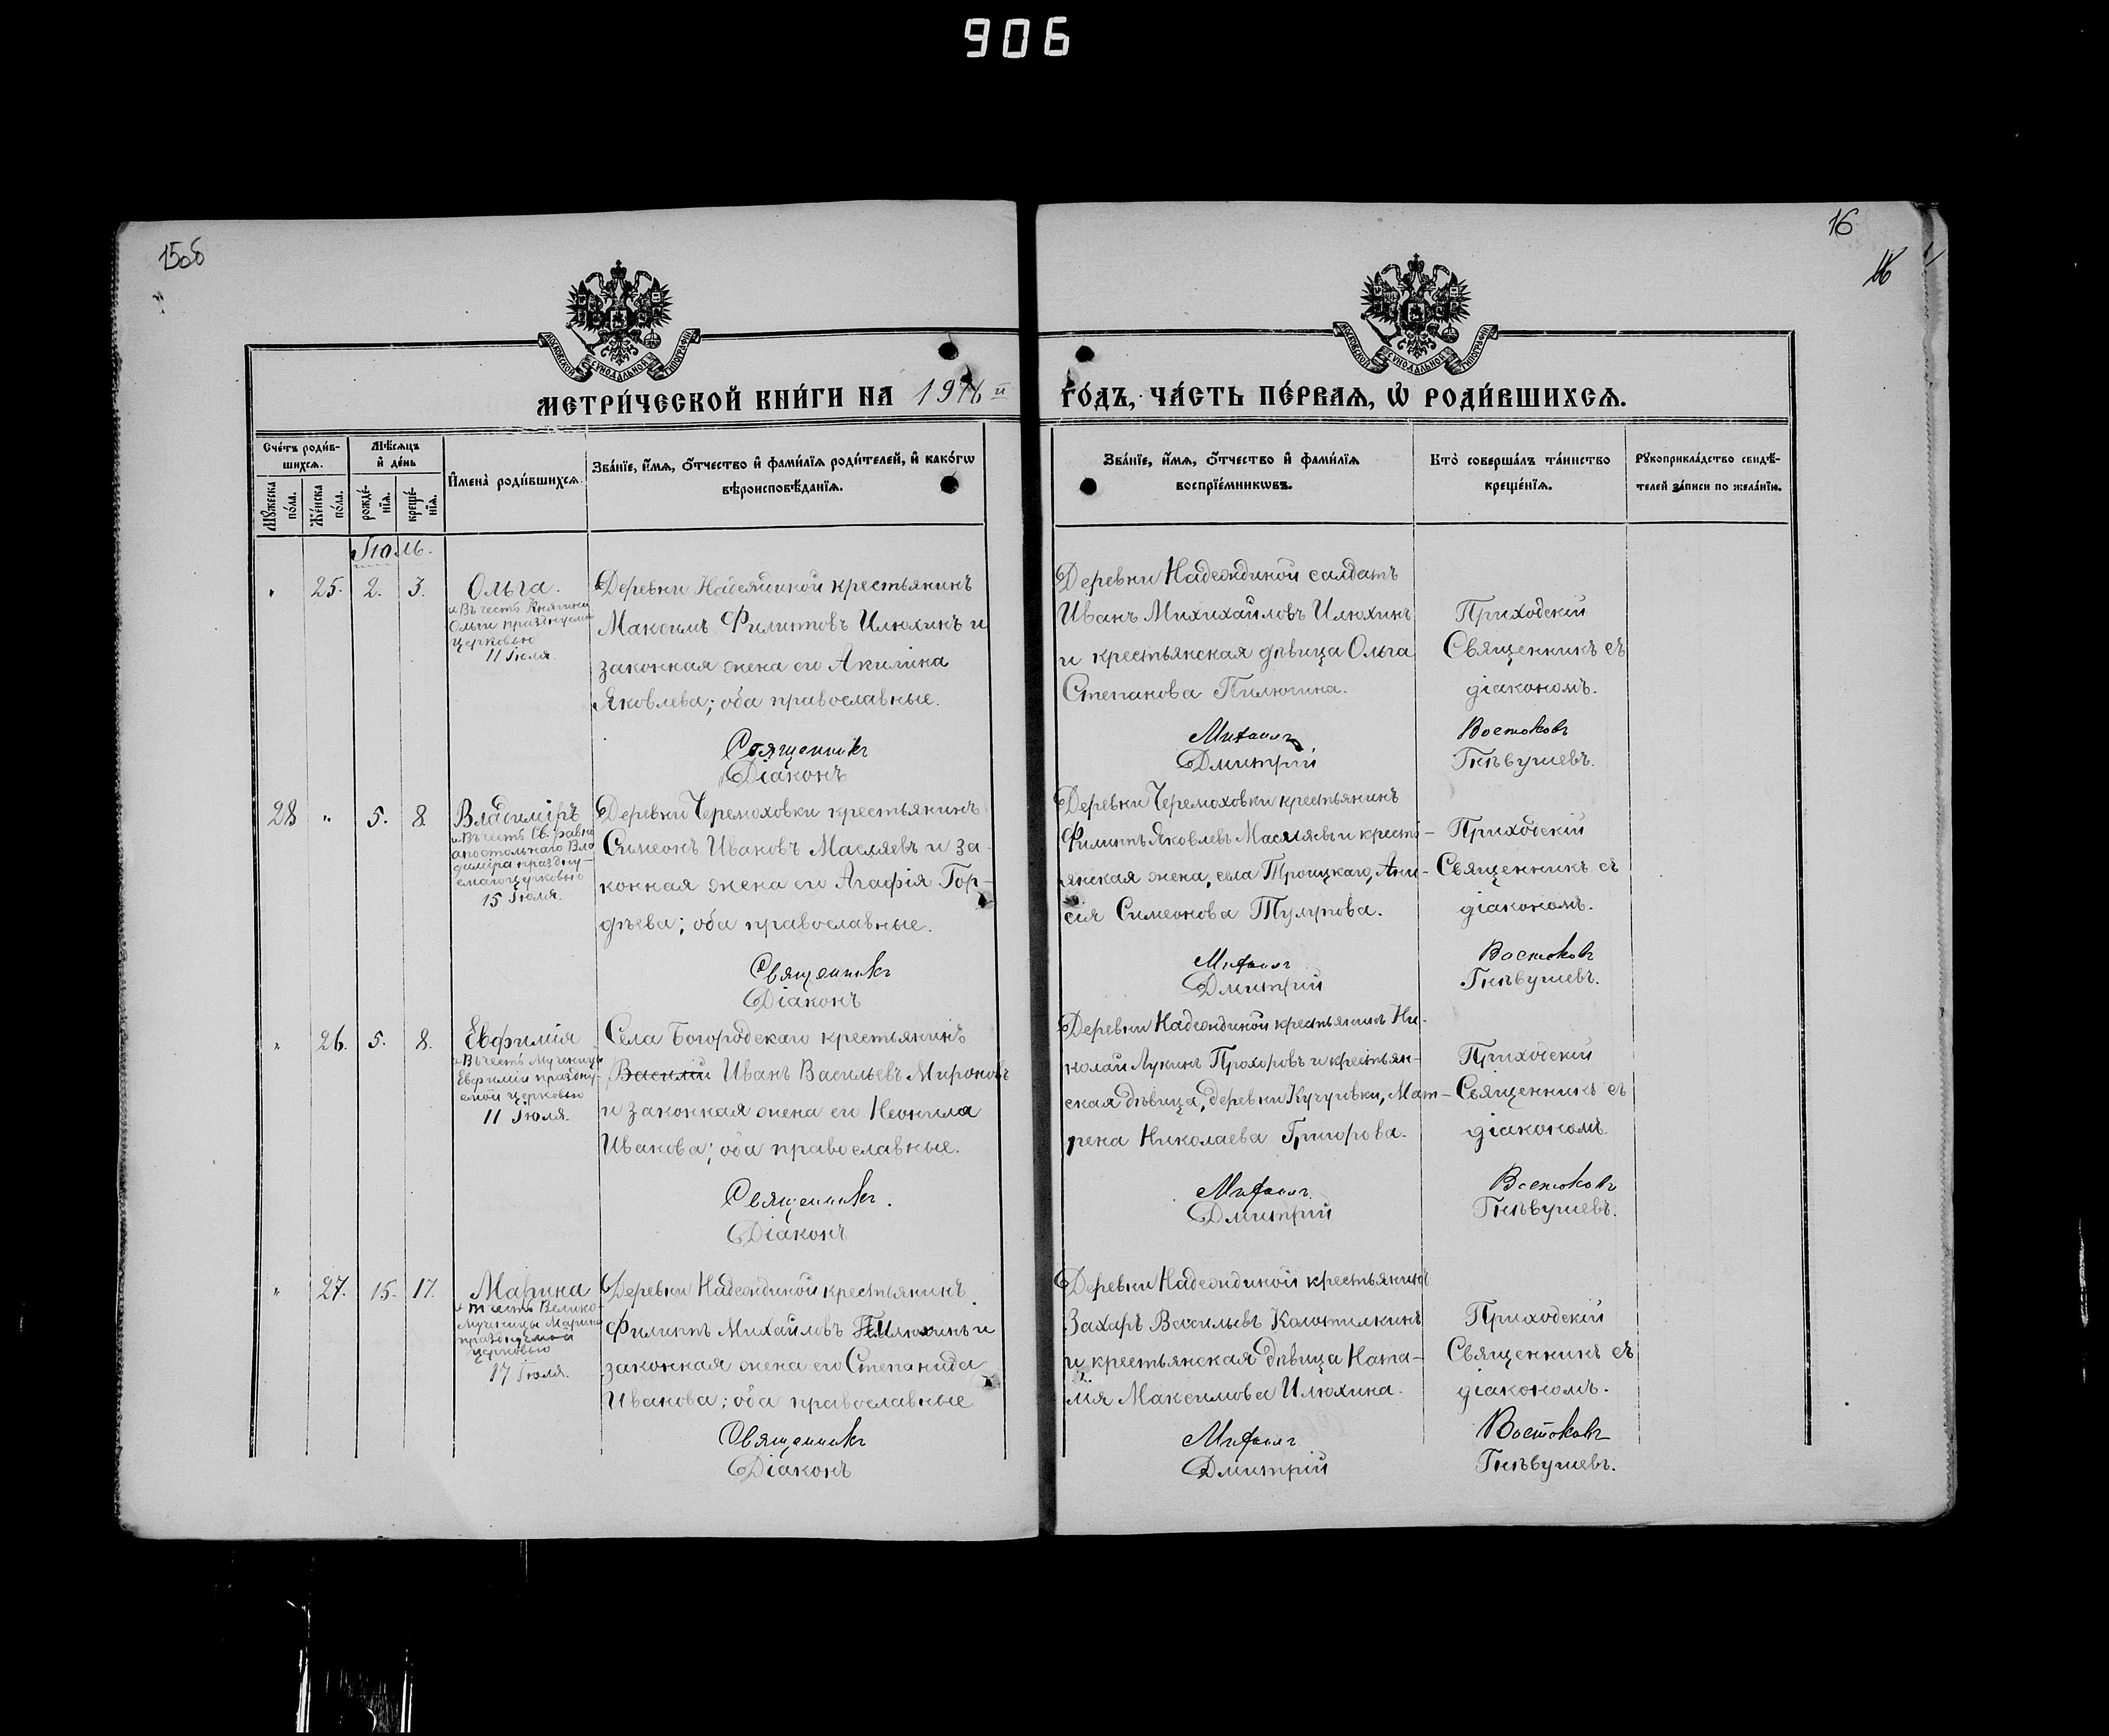 906
15об
16
16
МОСКОВСКОЙ СУНОДАЛЬНОЙ ТИПОГРАФІИ
МОСКОВСКОЙ СУНОДАЛЬНОЙ ТИПОГРАФІИ
МЕТРИ́ЧЕСКОЙ КНИ́ГИ НА 1916 й ГО́ДЪ, ЧА́СТЬ ПЕ́РВАѦ, Ѡ҆ РОДИ́ВШИХСѦ.
Сче́тъ роди́в-
шихсѧ.
Мꙋ́жеска по́ла.
Же́нска по́ла.
Мѣ́сѧцъ
и҆ де́нь
рожде́-
нїѧ.
креще́-
нїѧ.
И҆мена̀ роди́вшихсѧ.
Зва́нїе, и҆́мѧ, ѻ҆́тчество и҆ фами́лїѧ роди́телей, и҆ како́гѡ
вѣроисповѣ́данїѧ.
Зва́нїе, и҆́мѧ, ѻ҆́тчество и҆ фами́лїѧ
воспрїе́мникѡвъ.
Кто̀ соверша́лъ та́инство
креще́нїѧ.
Рꙋкоприкла́дство свидѣ́-
телей за́писи по жела́нїю.
Іюль.
" 25. 2. 3.
Ольга.
Въ честь Княгини
Ольги празднуемой
церковью
11 Іюля.
Деревни Надеждиной крестьянинъ
Максимъ Филипповъ Илюхинъ и
законная жена его Акилина
Яковлева; оба православные.
Священникъ
Діаконъ
Деревни Надеждиной салдатъ
Иванъ Михихайловъ Илюхинъ
и крестьянская дѣвица Ольга
Степанова Пилюгина.
Михаилъ
Дмитрій
Приходскій
Священникъ съ
діакономъ.
Востоковъ
Гнѣвушевъ.
28 " 5. 8.
Владиміръ
Въ честь Св. равно
апостольнаго Вла
диміра праздну-
емаго церковью
15 Іюля.
Деревни Черемоховки крестьянинъ
Симеонъ Ивановъ Масляевъ и за-
конная жена его Агафія Гор-
дѣева; оба православные.
Священникъ
Діаконъ
Деревни Черемоховки крестьянинъ
Филиппъ Яковлевъ Масляевъ и кресть-
янская жена, села Троицкаго, Ани-
сія Симеонова Тулупова.
Михаилъ
Дмитрій
Приходскій
Священникъ съ
діакономъ.
Востоковъ
Гнѣвушевъ.
" 26. 5. 8.
Евфимія
Въ честь Мученицы
Евфиміи праздну-
емой церковью
11 Іюля.
Села Богородскаго крестьянинъ
Василій Иванъ Васильевъ Мироновъ
и законная жена его Неонила
Иванова; оба православные.
Священникъ.
Діаконъ
Деревни Надеждиной крестьянинъ Ни-
колай Лукинъ Прохоровъ и крестьян-
ская дѣвица, деревни Кучуговки, Мат-
рена Николаева Григорова.
Михаилъ
Дмитрій
Приходскій
Священникъ съ
діакономъ
Востоковъ
Гнѣвушевъ.
" 27. 15. 17.
Марина
въ честь Велико-
мученицы Марины
празднуемой
церковью
17 Іюля.
Деревни Надеждиной крестьянинъ
Филиппъ Михайловъ Илюхинъ и
законная жена его Степанида
Иванова; оба православные
Священникъ
Діаконъ
Деревни Надеждиной крестьянинъ
Захаръ Васильевъ Колотилкинъ
и крестьянская дѣвица Ната-
лія Максимова Илюхина.
Михаилъ
Дмитрій
Приходскій
Священникъ съ
діакономъ.
Востоковъ
Гнѣвушевъ.